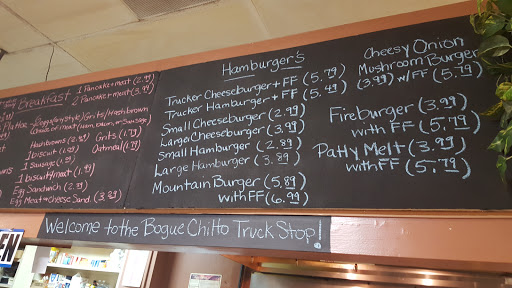 Breakfast
1 Pancake+meat (2.99)
2 Pancake+meat (3.99)
Choice of meat (Ham, Bacon, or Sausage)
Hashbrowns
Grits (1.79)
1 biscuit
Oatmeal
1 Sausage
1 biscuit w/meat
Egg Sandwich
Egg Meat+cheese Sand. (3.39)
Hamburger's
Trucker Cheeseburger + FF (5.79)
Trucker Hamburger + FF (5.49)
Small Cheeseburger (2.99)
Large Cheeseburger (3.99)
Small Hamburger (2.89)
Large Hamburger (3.89)
Mountain Burger (5.89)
with FF (6.99)
Cheesy Onion
Mushroom Burger
(3.99) w/FF (5.79)
Fireburger (3.99)
with FF (5.79)
Patty Melt (3.99)
with FF (5.79)
Welcome to the Bogue Chitto Truck Stop!